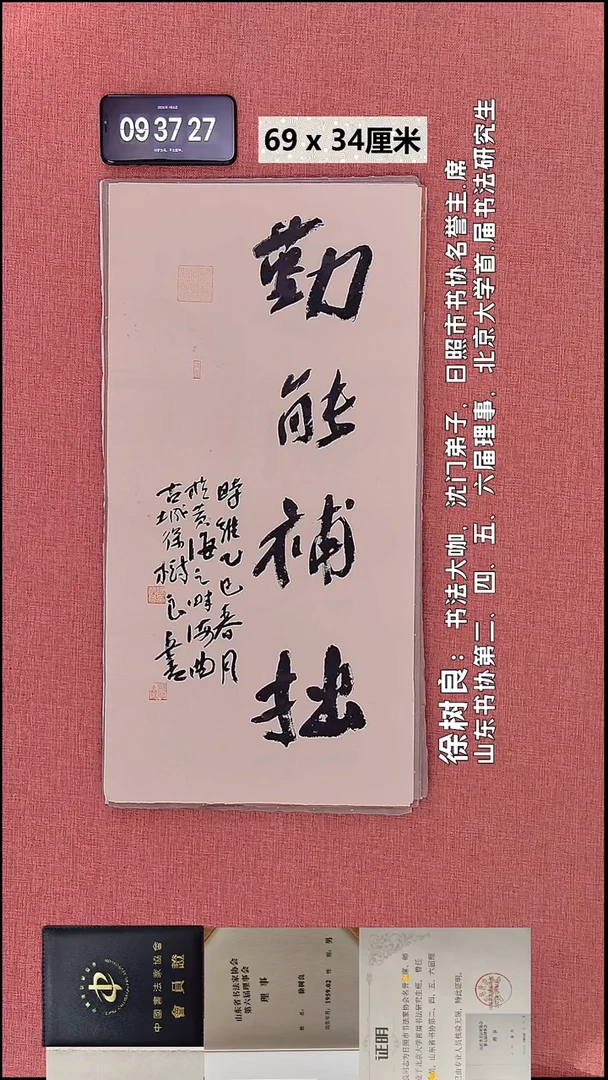 09 37 27
69 x 34厘米
勤能補拙
時維乙巳春月
於黄海之畔海曲
古城徐樹良書
徐树良：书法大咖，沈门弟子，日照市书协名誉主席
山东书协第二、四、五、六届理事，北京大学首届书法研究生
中國書法家協會
會員證
山东省书法家协会
第六届理事会
理事
姓名：徐树良
性别：男
出生年月：1959.02
证明